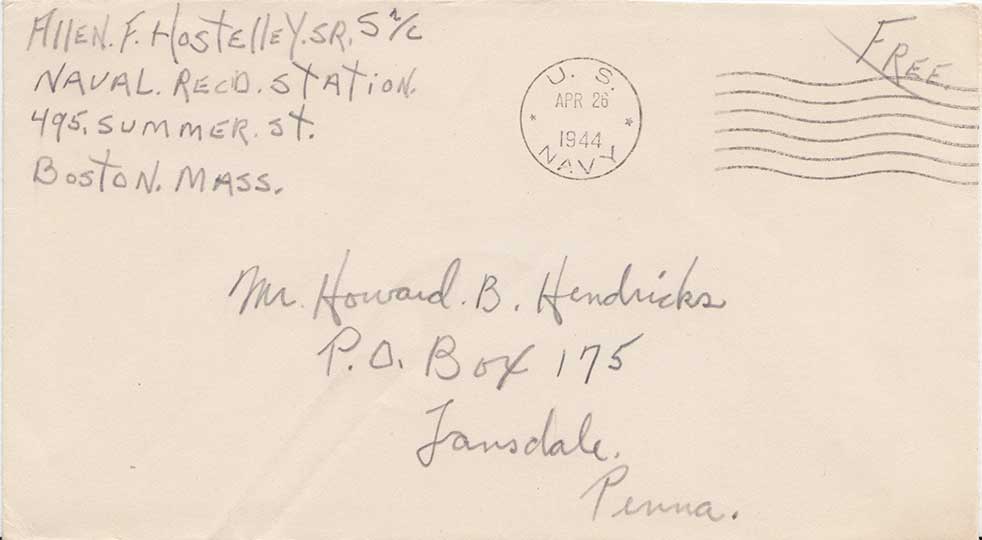 Allen. F. Hostelley. SR. S 2/c
Naval. Rec'd. Station.
495. Summer. St.
Boston. Mass.
U. S.
APR 26
1944
NAVY
Free.
Mr. Howard. B. Hendricks
P.O. Box 175
Lansdale.
Penna.